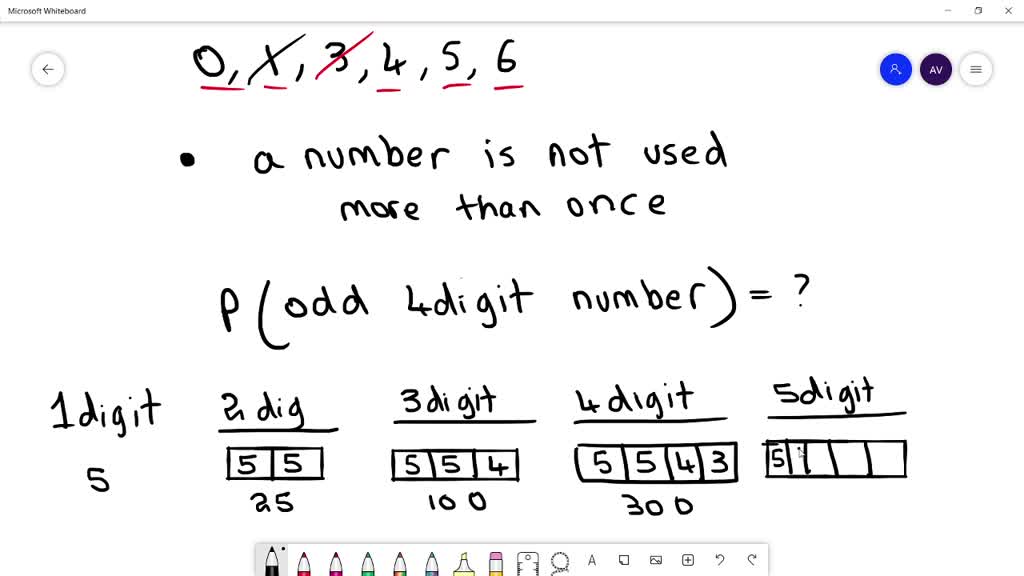 Microsoft Whiteboard
AV
0, 1, 3, 4, 5, 6
• a number is not used
more than once
P(odd 4digit number) = ?
1digit 2dig 3digit 4digit 5digit
5 5 5 5 5 4 5 5 4 3 5
5 25 100 300
A